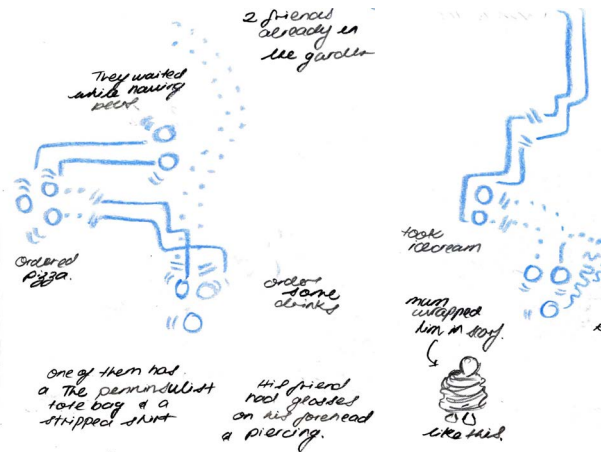 2 friends
already in
the garden
They waited
while having
beer.
Ordered
pizza.
order
some
drinks
took
icecream
mum
wrapped
him in scarf.
like this.
one of them has
a The penninsulist
tote bag & a
stripped shirt
His friend
had glasses
on his forehead
& piercing.